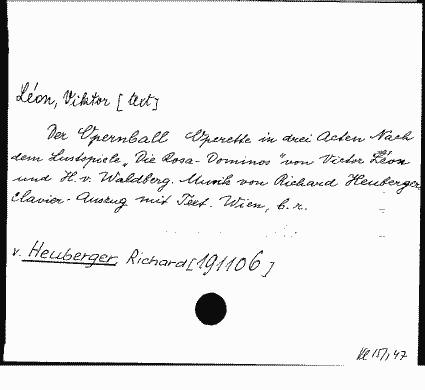 Léon, Viktor [text]
Der Opernball Operette in drei Acten Nach
dem Lustspiele "Die Rosa-Dominos" von Victor Léon
und H. v. Waldberg. Musik von Richard Heuberger
Clavier-Auszug mit Text. Wien, b. r.
v. Heuberger, Richard [191106]
15/, 47